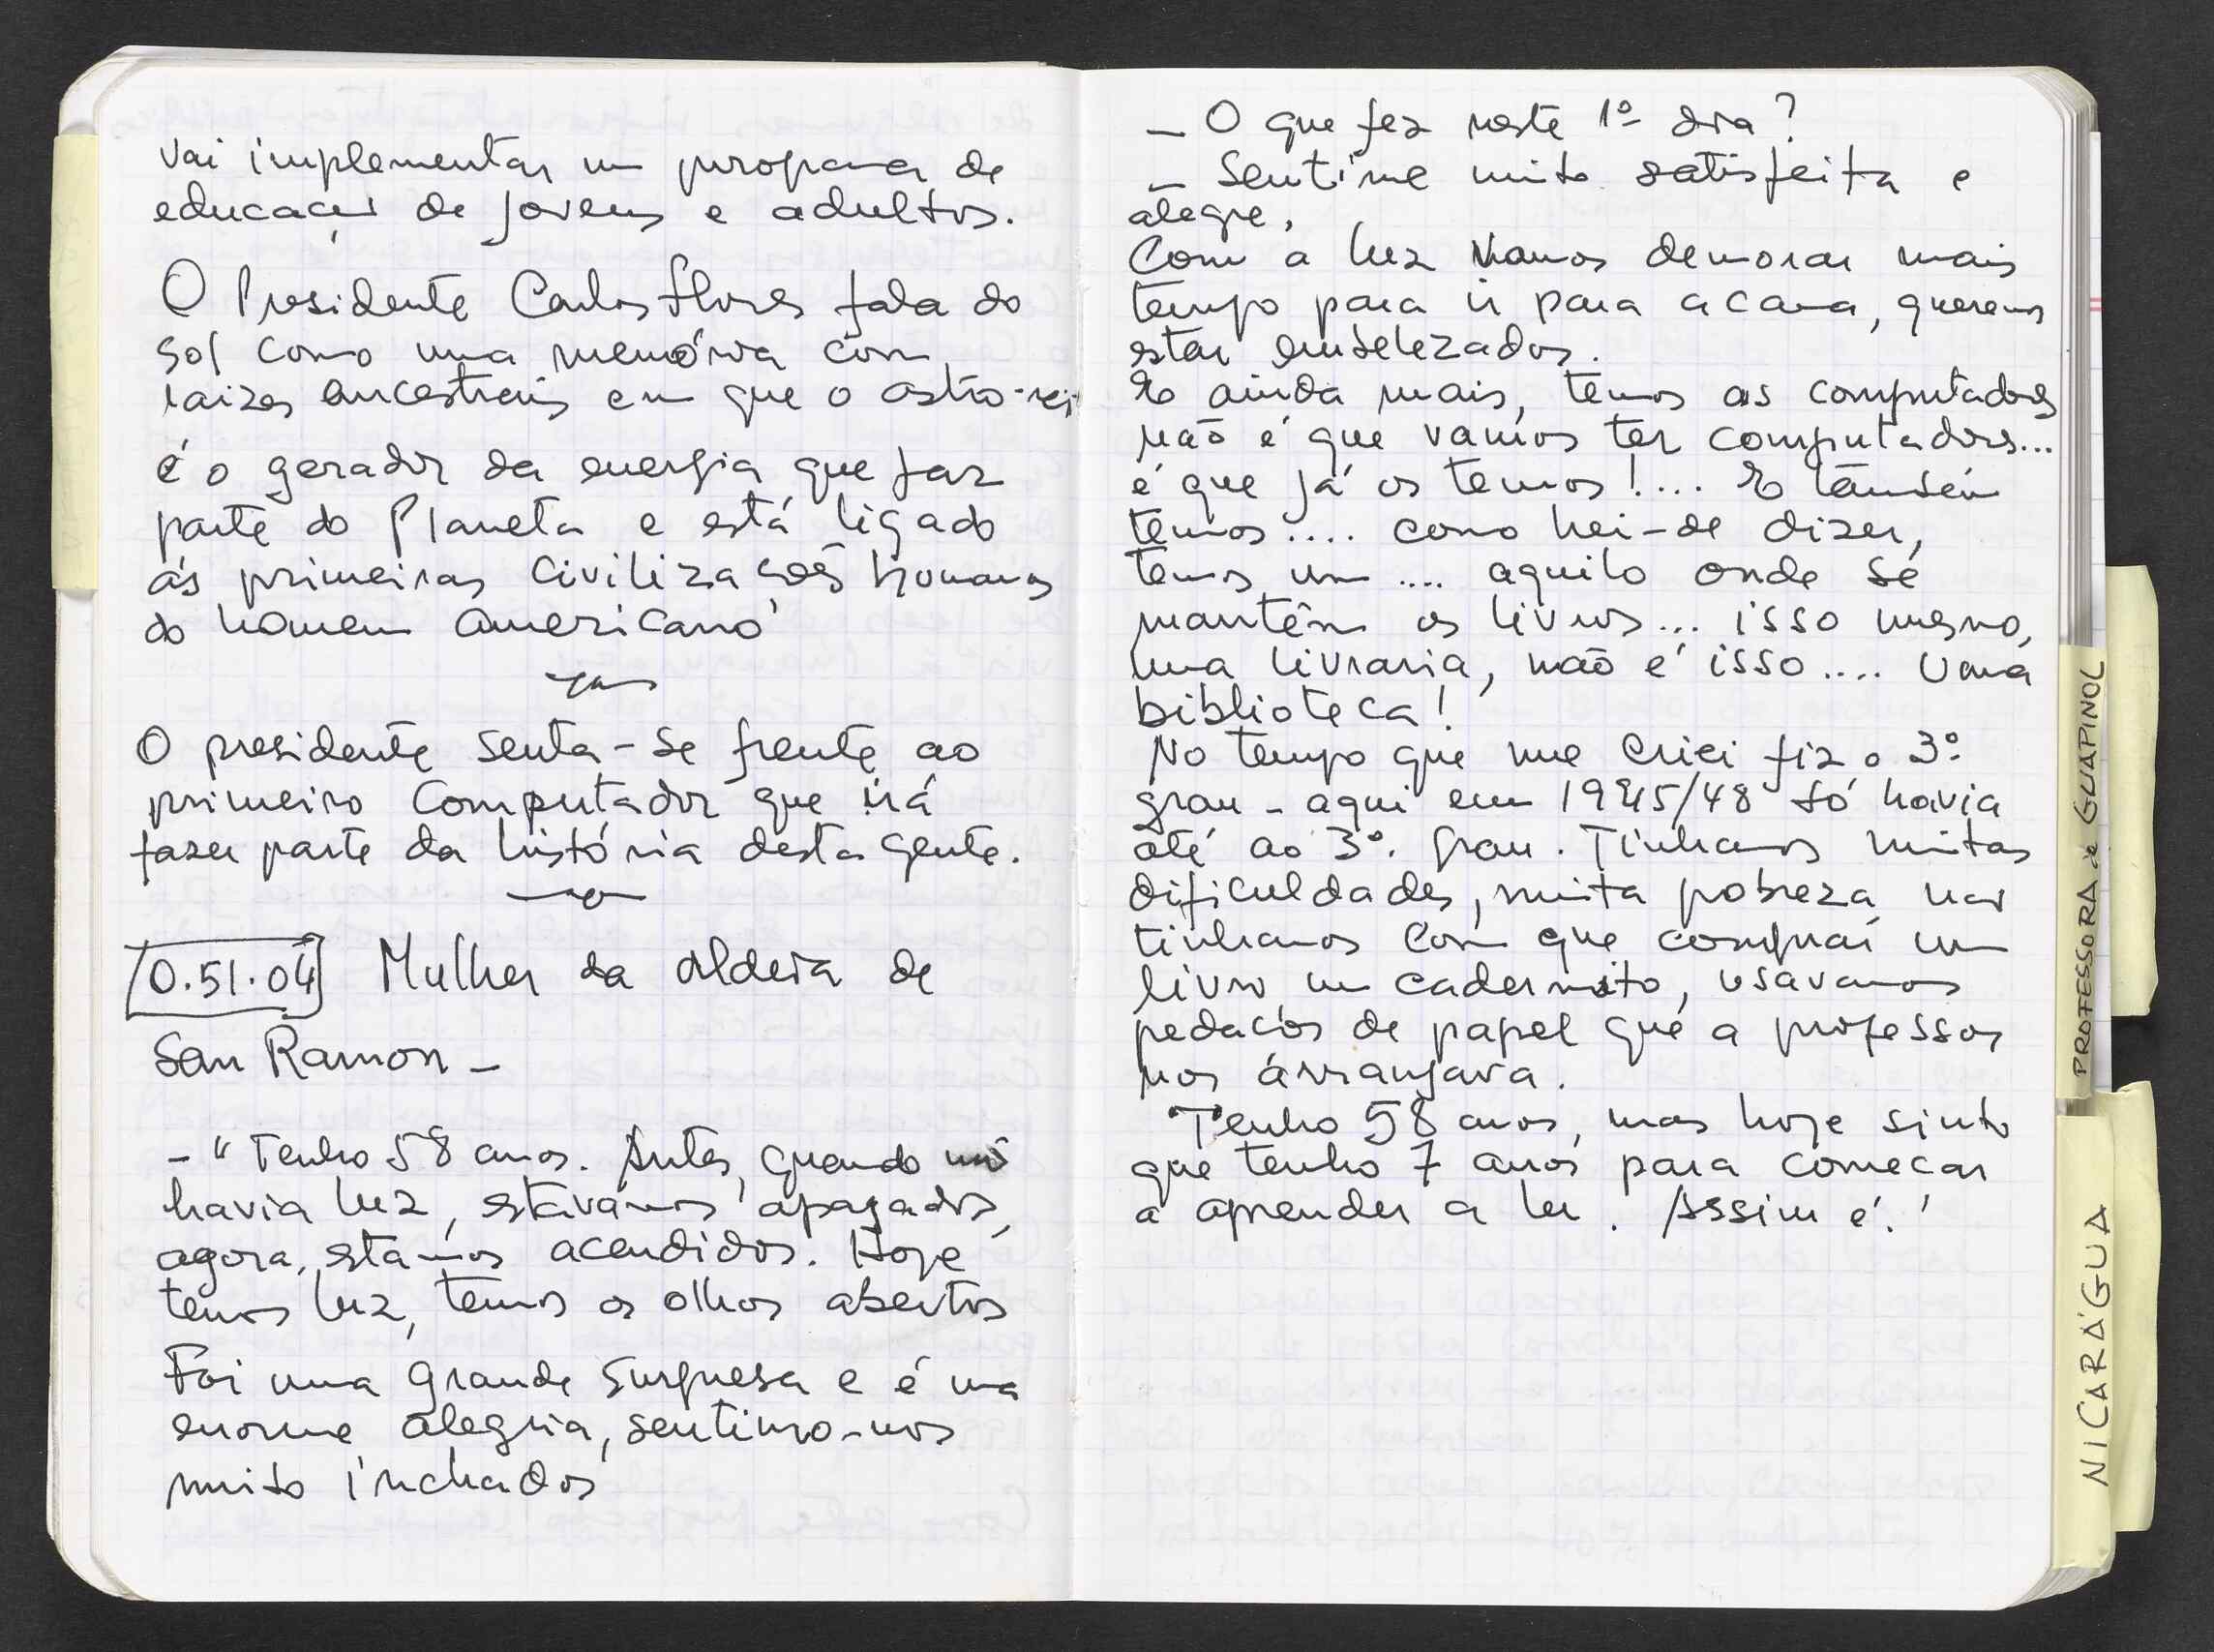 vai implementar um programa de
educação de jovens e adultos.
O Presidente Carlos Flores fala do
sol como uma memória com
raizes ancestrais em que o astro-rei
é o gerador da energia que faz
parte do Planeta e está ligado
ás primeiras civilizações humanas
do homem americano
O presidente senta-se frente ao
primeiro computador que irá
fazer parte da história desta gente.
0.51.04 Mulher da aldeia de
San Ramon -
- "Tenho 58 anos. Antes, quando não
havia luz, estávamos apagados,
agora, estamos acendidos. Hoje
temos luz, temos os olhos abertos
Foi uma grande surpresa e é uma
enorme alegria, sentimo-nos
muito inchados
- O que fez neste 1º dia?
- Senti-me muito satisfeita e
alegre.
Com a luz vamos demorar mais
tempo para ir para a cama, queremos
estar embelezados.
E ainda mais, temos os computadores
não é que vamos ter computadores...
é que já os temos!.... E também
temos.... como hei-de dizer,
temos um .... aquilo onde se
mantêm os livros... isso mesmo,
uma livraria, não é isso.... Uma
biblioteca!
No tempo que me criei fiz o 3º
grau - aqui em 1945/48 só havia
até ao 3º. grau. Tínhamos muitas
dificuldades, muita pobreza, não
tinhamos com que comprar um
livro, um cadernito, usavamos
pedaços de papel que a professora
nos arranjava.
Tenho 58 anos, mas hoje sinto
que tenho 7 anos para começar
a aprender a ler. Assim é!
PROFESSORA de GUAPINOL
NICARÁGUA